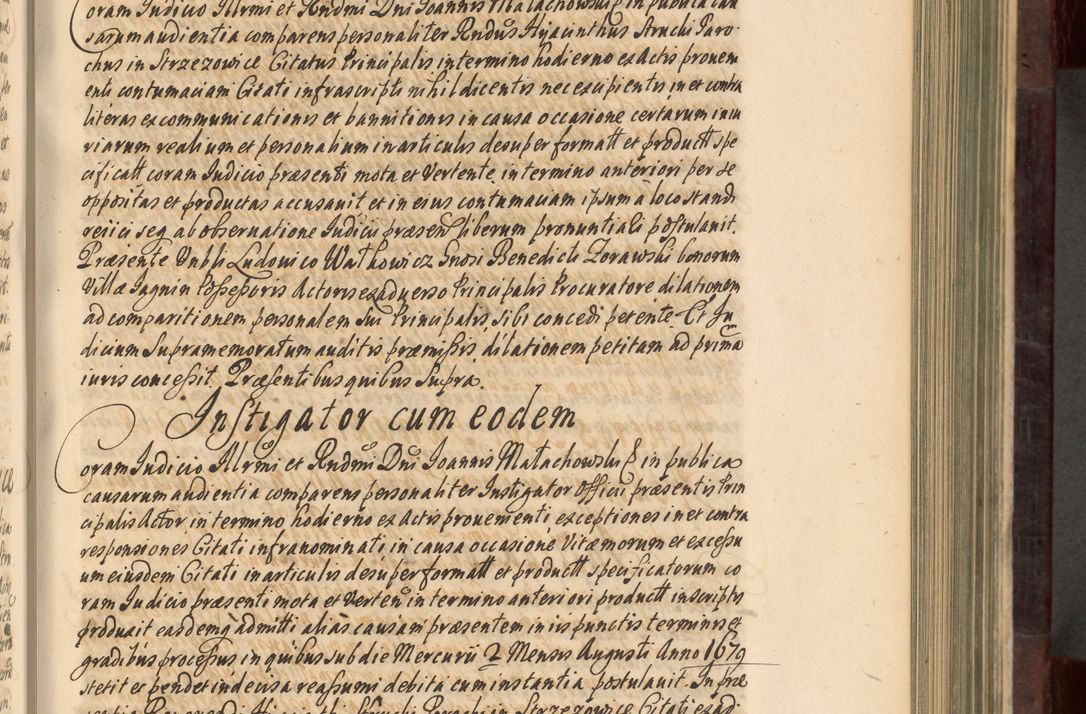 Coram Judicio Illrmi et Rndmi Dni Joannis Małachowski in publica cau
sarum audientia comparens personaliter Rndus Hyacinthus Struchi Paro
chus in Strzezowice Citatus Principalis in termino hodierno ex Actis proven
enti contumaciam Citati infrascripti nihil dicentis nec excipientis in et contra
literas excommunicationis et bannitionis in causa occasione certarum iniu
riarum realium et personalium in articulis desuper formatt et productt spe
cificatt coram Judicio præsenti mota et Vertente in termino anteriori per se
oppositas et productas accusavit et in eius contumaciam ipsum a loco standi
reiici seq ab observatione Judicii præsen liberum pronuntiali postulavit.
Præsente Nobli Ludovico Wałkowicz Gnosi Benedicti Zorawski bonorum
Villæ Jagnin Possessoris Actoris ex adverso Principalis Procuratore dilationem
ad comparitionem personalem Sui Principalis, sibi concedi petente. Et Ju
dicium Supramemoratum auditis præmissis dilationem petitam ad prima
iuris concessit. Præsentibus quibus Supra.
Instigator cum eodem
Coram Judicio Illrmi et Rndmi Dni Joannis Małachowski in publica
causarum audientia comparens personaliter Instigator Officii præsentis Prin
cipalis Actor in termino hodierno ex Actis provenienti exceptiones in et contra
responsiones Citati infranominati in causa occasione Vitæ morum et excessu
um eiusdem Citati in articulis desuper formatt et productt specificatorum co
ram Judicio præsenti mota et Verten in termino anteriori productt inscriptis
produxit easdemq admitti alias causam præsentem in iis punctis terminis et
gradibus processus in quibus sub die Mercurii 2 Mensis Augusti Anno 1679
stetit et pendet indecisa reassumi debita cum instantia postulavit. In præ
sentia Hyacinthi Struchi Strzezowice Citati ex ad